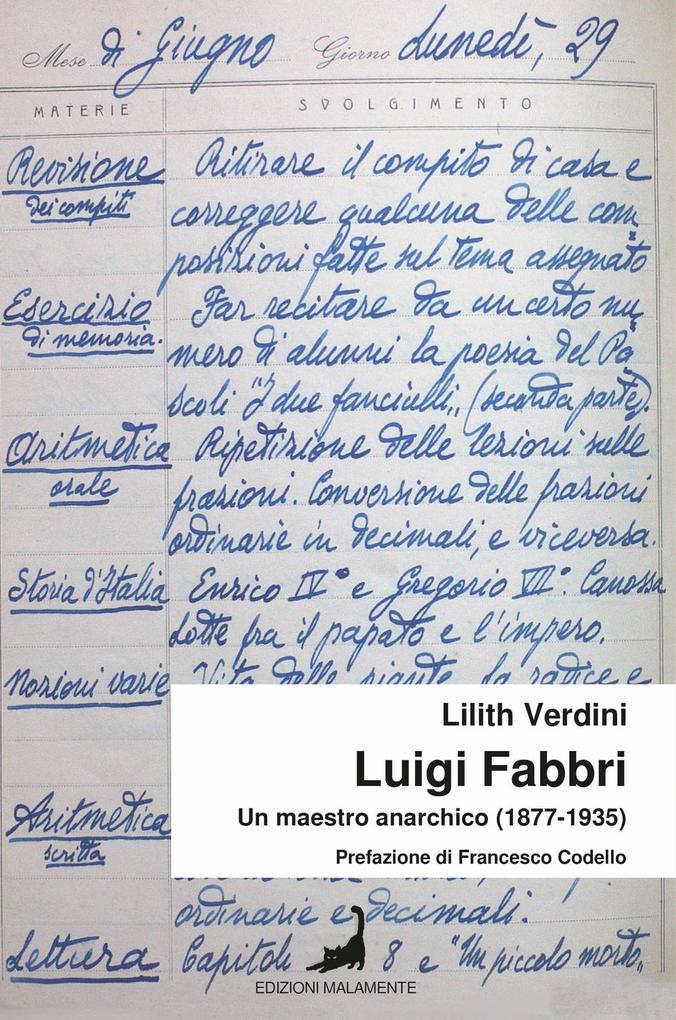 Mese di Giugno Giorno Lunedì, 29
MATERIE SVOLGIMENTO
Revisione Ritirare il compito di casa e
dei compiti correggere qualcuna delle com
posizioni fatte sul tema assegnato
Esercizio Far recitare da un certo nu
di memoria. mero di alunni la poesia del Pa
scoli "I due fanciulli„ (seconda parte).
Aritmetica Ripetizione delle lezioni sulle
orale frazioni. Conversione delle frazioni
ordinarie in decimali, e viceversa.
Storia d'Italia Enrico IV° e Gregorio VII°. Canossa
Lotte fra il papato e l'impero.
Nozioni varie Vita delle piante la radice e
Lilith Verdini
Luigi Fabbri
Un maestro anarchico (1877-1935)
Aritmetica
scritta
Prefazione di Francesco Codello
ordinarie e decimali.
Lettura Capitoli 8 e "Un piccolo morto„
EDIZIONI MALAMENTE